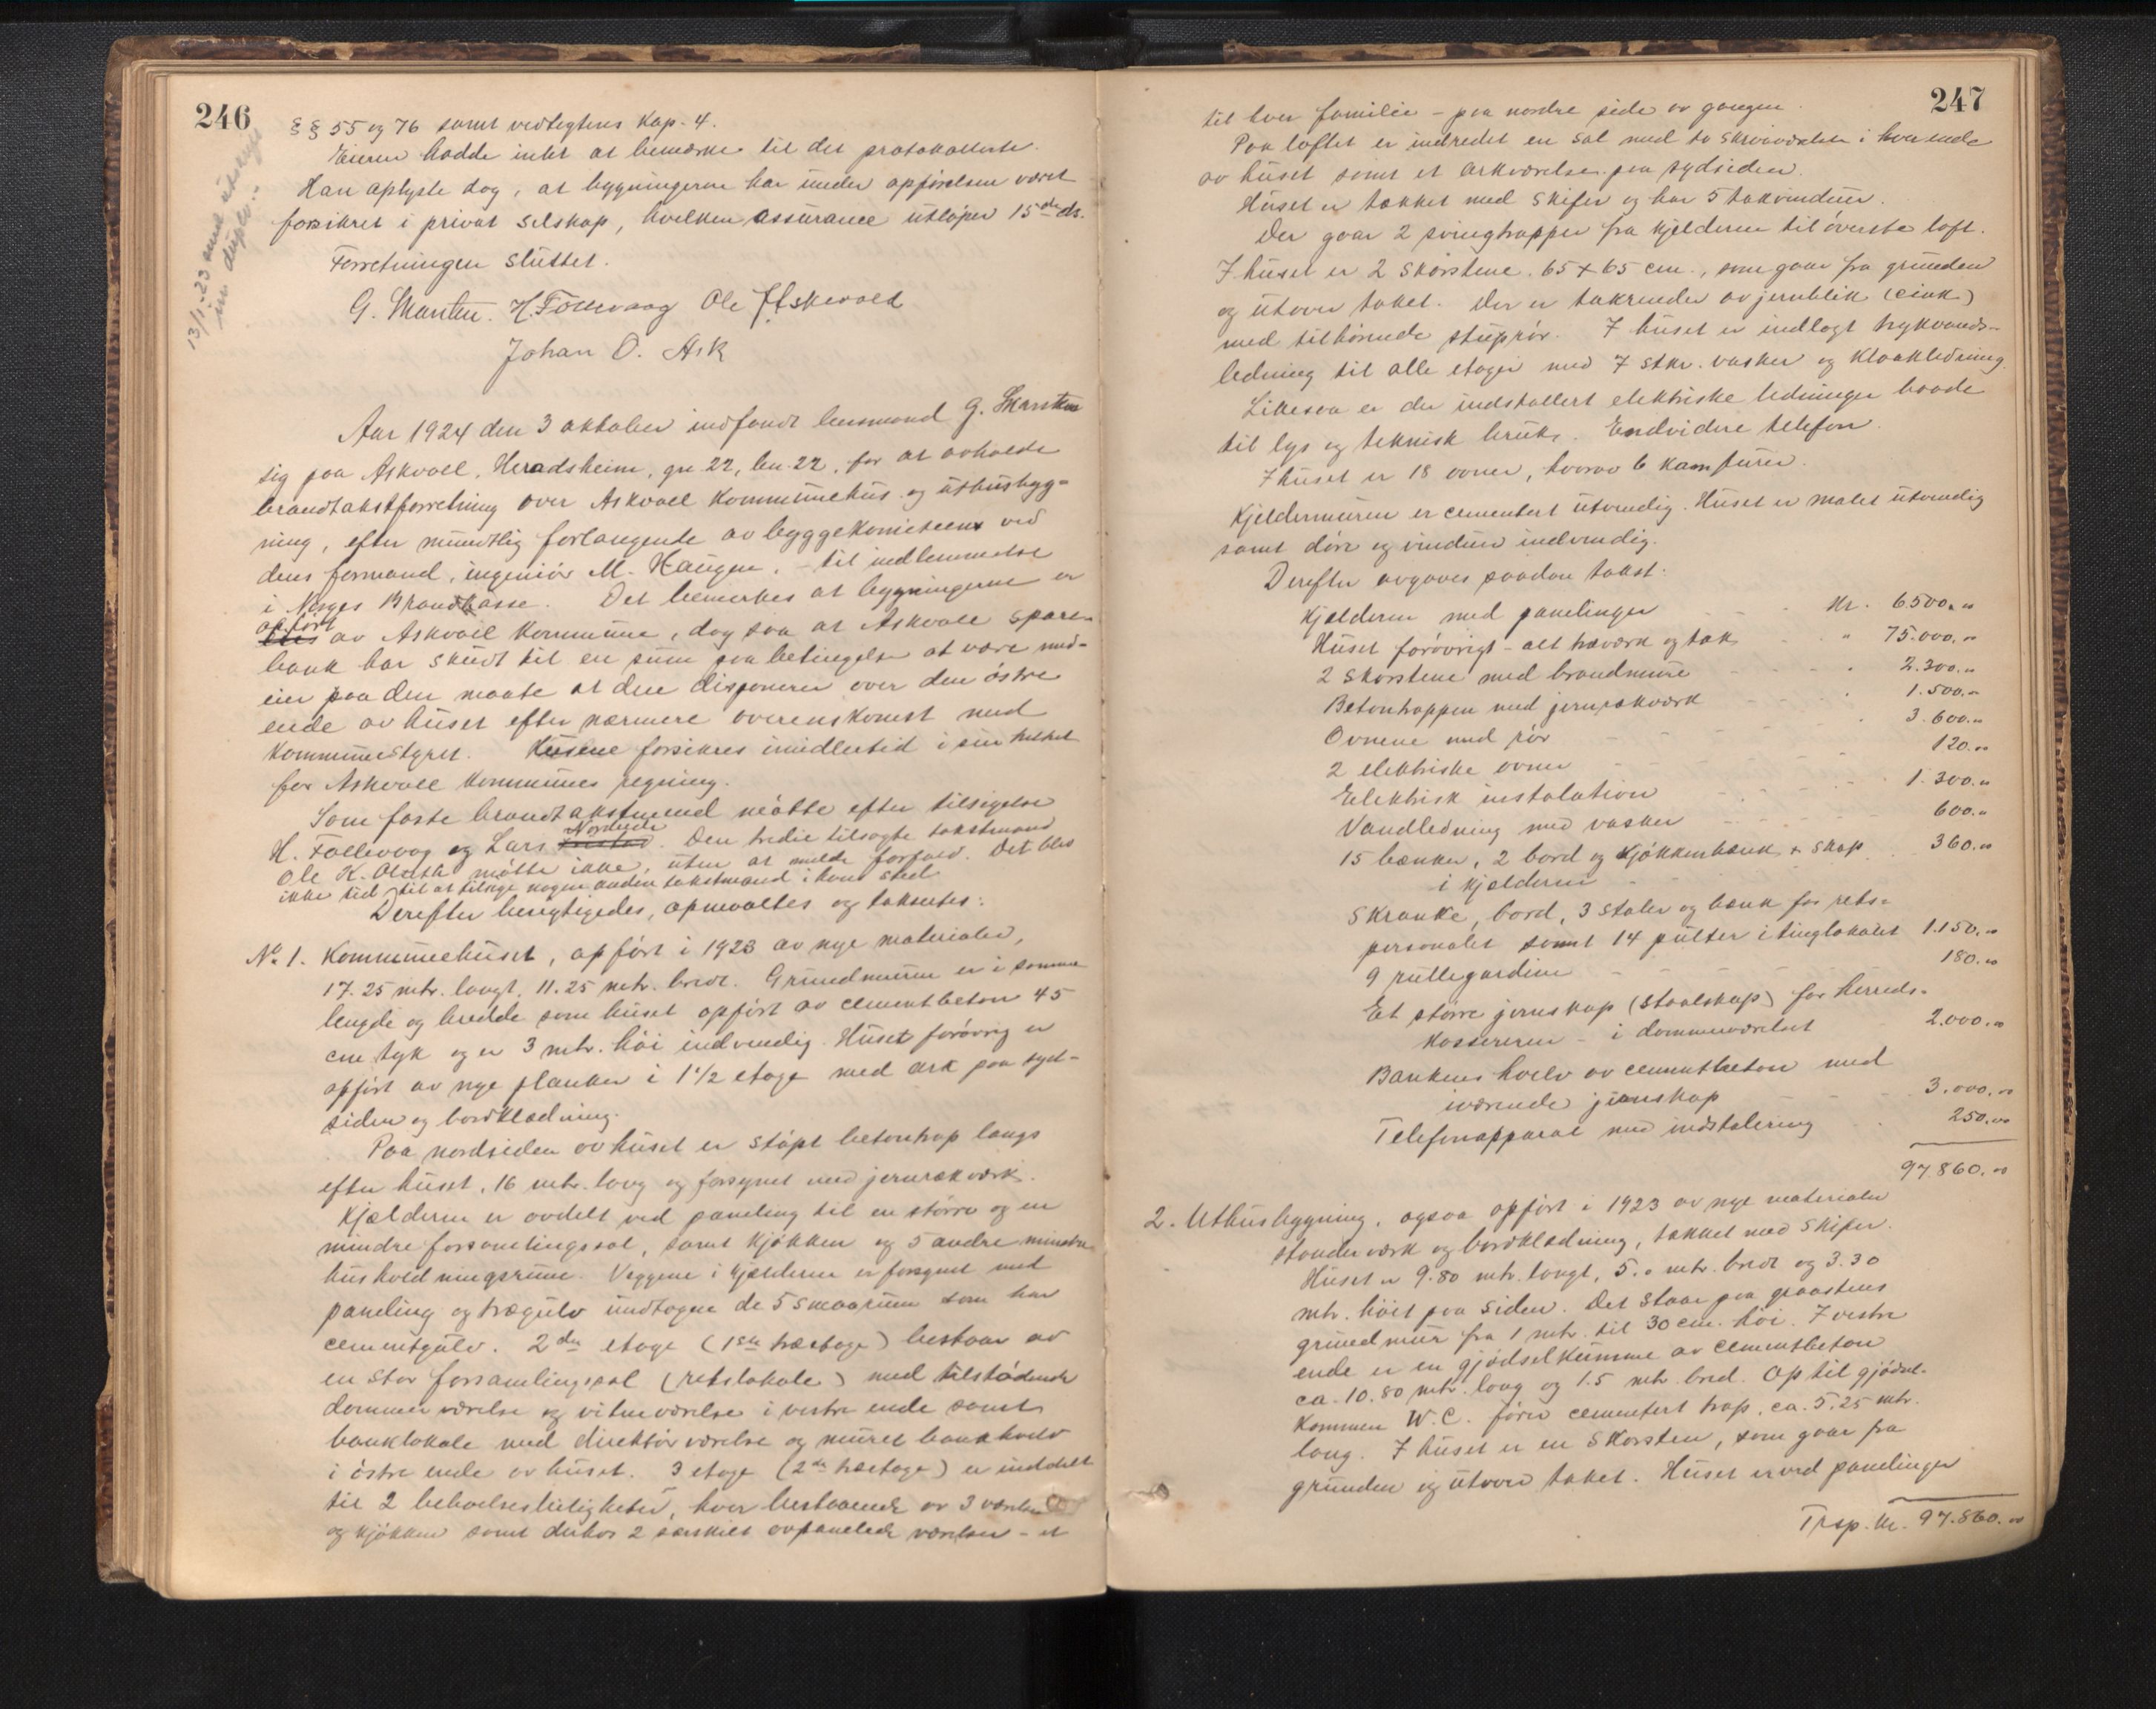 246
§§ 55 og 76 samt vedtegtens Kap. 4.
Eieren hadde intet at bemærke til det protokollerte.
Han oplyste dog, at bygningerne har under opførelsen været
forsikret i privat selskap, hvilken assurance utløper 15de ds.
Forretningen sluttet.
G. H. Follevaag Ole Askevold
Johan O. Ask
13/1.23 send utskrift
in duplo.
Aar 1924 den 3 oktober indfandt lensmand G.
sig paa Askvoll, Heradsheim, gn. 22, bn. 22, for at avholde
brandtakstforretning over Askvoll Kommunehus og uthusbyg-
ning, efter mundtlig forlangende av byggekomiteens ved
dens formand, ingeniør M. Haugen, - til indlemmelse
i Norges Brandkasse. Det bemerkes at bygningerne er
opført
av Askvoll Kommune, dog saa at Askvoll Spare-
bank har skudt til en sum paa betingelse at være med-
eier paa den maate at den disponerer over den østre
ende av huset efter nærmere overenskomst med
Kommunestyret. Husene forsikres imidlertid i sin helhet
for Askvoll Kommunes regning.
Som faste brandtakstmænd møtte efter tilsigelse
H. Follevaag og Lars Nordeide. Den tredie tilsagte takstmand
Ole K. møtte ikke, uten at melde forfald. Det blev
ikke tid til at tilsige nogen anden takstmand i hans sted
Derefter besigtigedes, opmaaltes og taksertes:
No. 1. Kommunehuset, opført i 1923 av nye materialer,
17.25 mtr. langt, 11.25 mtr. bredt. Grundmuren er i samme
lengde og bredde som huset opført av cementbeton 45
cm tyk og er 3 mtr. høi indvendig. Huset forøvrig er
opført av nye planker i 1 1/2 etage med ark paa syd-
siden og bordklædning.
Paa nordsiden av huset er støpt betontrap langs
efter huset, 16 mtr. lang og forsynet med jernrækverk.
Kjælderen er avdelt ved paneling til en større og en
mindre forsamlingssal, samt kjøkken og 5 andre mindre
husholdningsrum. Veggene i kjælderen er forsynet med
paneling og trægulv undtagen de 5 smaarum som har
cementgulv. 2den etage (1ste træetage) bestaar av
en stor forsamlingssal (retslokale) med tilstødende
dommerværelse og vitneværelse i vestre ende samt
banklokale med direktørværelse og muret bankhvelv
i østre ende av huset. 3 etage (2de træetage) er inddelt
til 2 beboelsesleiligheter, hver bestaaende av 3 værelser
og kjøkken samt derhos 2 særskilt avpanelede værelser - et
247
til hver familie - paa nordre side av gangen.
Paa loftet er indredet en sal med to skraaværelser i hver ende
av huset samt et arkværelse paa sydsiden.
Huset er tækket med skifer og har 5 takvinduer.
Der gaar 2 svingtrapper fra kjelderen til øverste loft.
I huset er 2 skorstene, 65 x 65 cm., som gaar fra grunden
og utover taket. Der er takrender av jernblik (cink)
med tilhørende stuprør. I huset er indlagt trykvands-
ledning til alle etager med 7 stkr. vasker og kloakledning.
Likesaa er der indstallert elektriske ledninger baade
til lys og teknisk bruk. Endvidere telefon.
I huset er 18 ovner, hvorav 6 kamfurer.
Kjeldermuren er cementert utvendig. Huset er malet utvendig
samt døre og vinduer indvendig.
Derefter avgaves saadan takst:
Kjelderen med panelinger Kr. 6500.00
Huset forøvrigt - alt træverk og tak " 75.000.00
2 skorstene med brandmure " 2.300.00
Betontrappen med jernrækværk " 1.500.00
Ovnene med rør 3.600.00
2 elektriske ovner 120.00
Elektrisk instalation 1.300.00
Vandledning med vasker 600.00
15 bænker, 2 bord og kjøkkenbænk + skap
i kjelderen 360.00
Skranke, bord, 3 stoler og bænk for rets-
personalet samt 14 pulter i tinglokalet 1.150.00
9 rullegardiner 180.00
Et større jernskap (staalskap) for herreds-
kassereren - i dommerværelset 2.000.00
Bankens hvelv av cementbeton med
iværende jernskap 3.000.00
Telefonapparat med indstalering 250.00
97.860.00
2. Uthusbygning, ogsaa opført i 1923 av nye materialer
stenderværk og bordklædning, tækket med skifer.
Huset er 9.80 mtr. langt, 5.0 mtr. bredt og 3.30
mtr. høit paa siden. Det staar paa graastens
grundmur fra 1 mtr. til 30 cm. høi. I vestre
ende er en gjødselkumme av cementbeton
ca. 10.80 mtr. lang og 1.5 mtr. bred. Op til gjødsel-
kummen W.C. fører cementert trap, ca. 5.25 mtr.
lang. I huset er en skorsten, som gaar fra
grunden og utover taket. Huset er ved panelinger
Trsp. Kr. 97.860.00